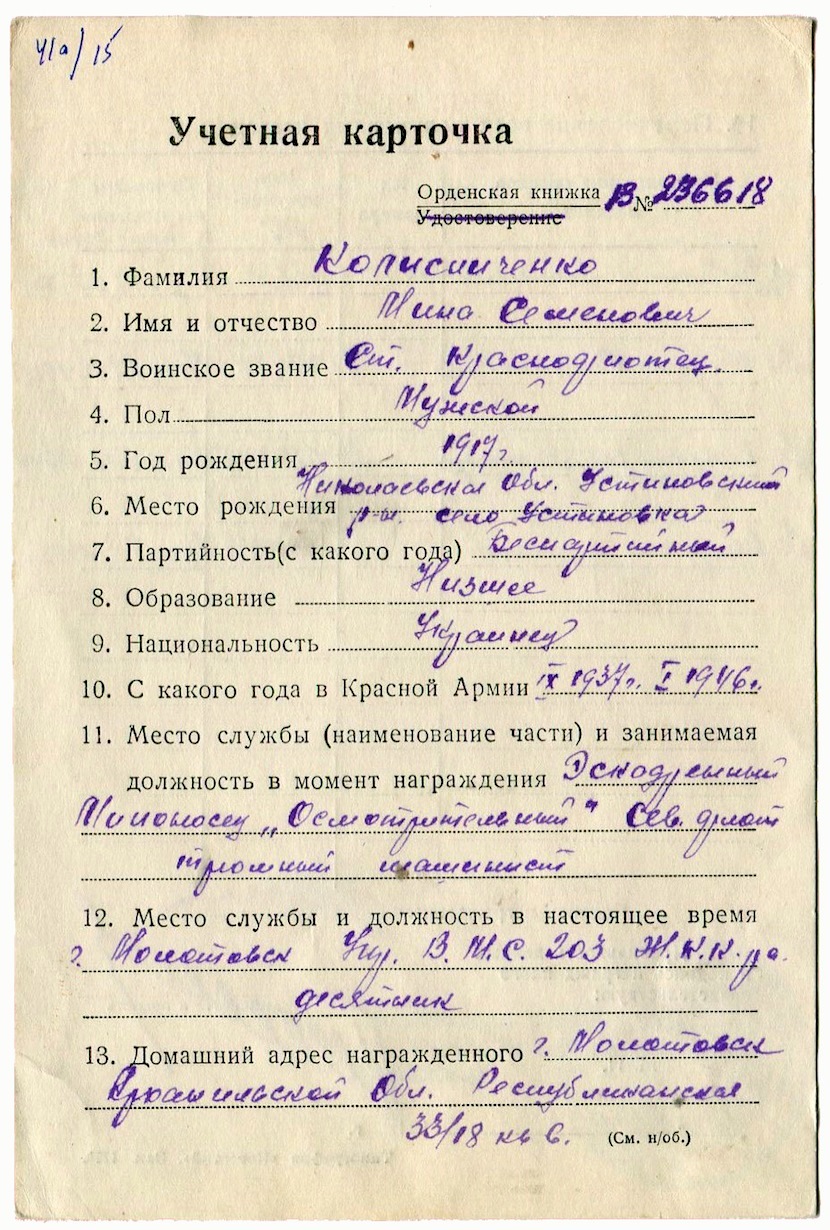 41а/15
Учетная карточка
Орденская книжка В № 236618
Удостоверение
1. Фамилия Колисниченко
2. Имя и отчество Мина Семенович
3. Воинское звание Ст. Краснофлотец
4. Пол Мужской
5. Год рождения 1917 г.
Николаевская обл. Устиновский
6. Место рождения р-н. село Устиновка
7. Партийность(с какого года) Беспартийный
8. Образование Низшее
9. Национальность Украинец
10. С какого года в Красной Армии IX 1937 г. I 1946 г.
11. Место службы (наименование части) и занимаемая
должность в момент награждения Эскадренный
Миноносец „Осмотрительный" Сев. флот
трюмный машинист
12. Место службы и должность в настоящее время
г. Молотовск Упр. В.М.С. 203
десятник
13. Домашний адрес награжденного г. Молотовск
Обл. Республиканская
33/18 кв 6. (См. н/об.)